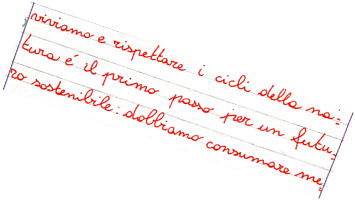 viviamo e rispettare i cicli della na=
tura é il primo passo per un futu=
ro sostenibile: dobbiamo consumare me=